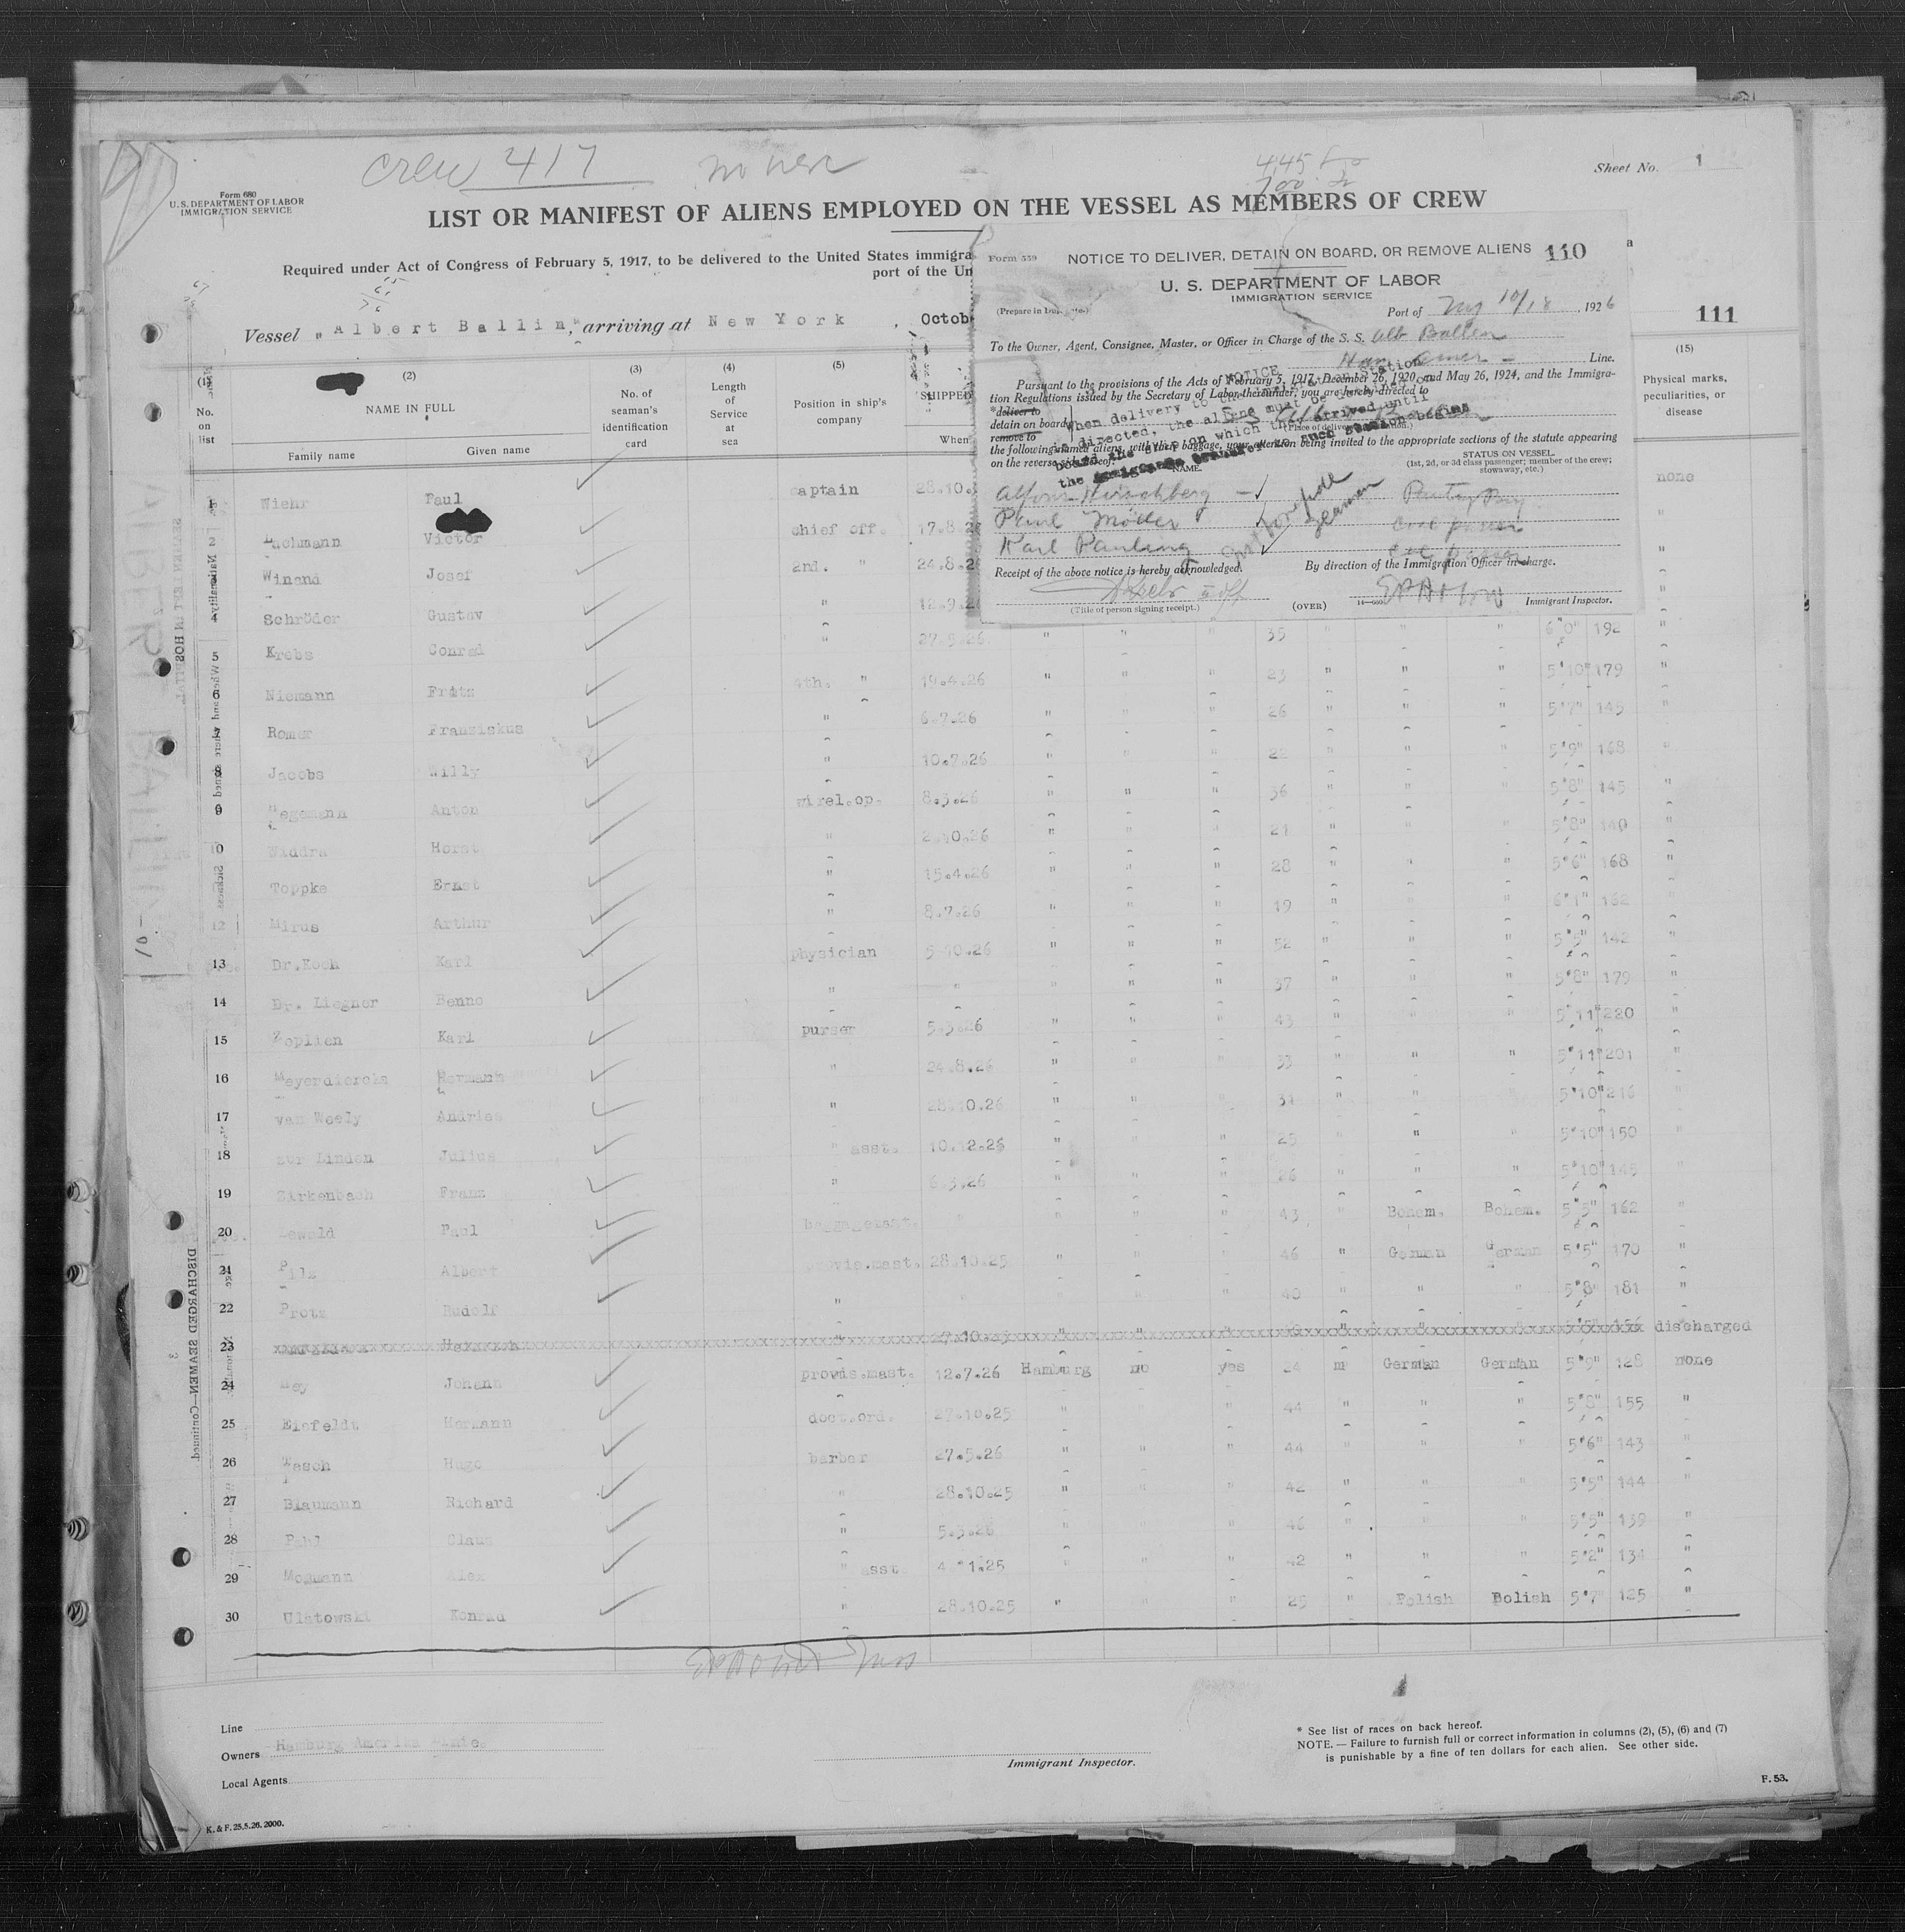 crew 417
445
Sheet No. 1
Form 680
U.S. DEPARTMENT OF LABOR
IMMIGRATION SERVICE
LIST OR MANIFEST OF ALIENS EMPLOYED ON THE VESSEL AS MEMBERS OF CREW
Required under Act of Congress of February 5, 1917, to be delivered to the United States immigra
port of the Un
Vessel „Albert Ballin", arriving at New York, Octob
111
Form 559
NOTICE TO DELIVER, DETAIN ON BOARD, OR REMOVE ALIENS 110
U. S. DEPARTMENT OF LABOR
IMMIGRATION SERVICE
Port of Ny 10/18, 1926
To the Owner, Agent, Consignee, Master, or Officer in Charge of the S. S. Alb Ballin
Ham Amer - Line.
Pursuant to the provisions of the Acts of February 5, 1917, December 26, 1920, and May 26, 1924, and the Immigra-
tion Regulations issued by the Secretary of Labor thereunder, you are hereby directed to
*deliver to
detain on board
remove to
(Place of delivery)
the following-named aliens, with their baggage, your attention being invited to the appropriate sections of the statute appearing
on the reverse side hereof:
NOTICE
When delivery to the Immigration Station
is directed, the aliens must be detained on
board the ship on which they arrived until
the
NAME.
STATUS ON VESSEL.
(1st, 2d, or 3d class passenger; member of the crew; stowaway, etc.)
Alfons Hirschberg Pantry Boy
Paul Möller Coal passer
Karl Pauling Coal passer
seaman
Receipt of the above notice is hereby acknowledged.
By direction of the Immigration Officer in charge.
(Title of person signing receipt.)
(OVER)
Immigrant Inspector.
(1) No. on list
(2) NAME IN FULL
Family name
Given name
(3) No. of seaman's identification card
(4) Length of Service at sea
(5) Position in ship's company
SHIPPED
When
(15) Physical marks, peculiarities, or disease
1 Wiehr Paul captain 28.10. none
2 Lachmann Victor chief off. 17.8.26 "
3 Winand Josef 2nd. " 24.8.26 "
4 Schröder Gustav " 12.9.2 "
5 Krebs Conrad " 27.5.26 " " " 35 " " " 6'0" 192 "
6 Niemann Fritz 4th. " 19.4.26 " " " 23 " " " 5'10" 179 "
7 Romer Franziskus " 6.7.26 " " " 26 " " " 5'7" 145 "
8 Jacobs Willy " 10.7.26 " " " 22 " " " 5'9" 168 "
9 Hegemann Anton wirel.op. 8.3.26 " " " 36 " " " 5'8" 145 "
10 Waddra Horst " 2.10.26 " " " 21 " " " 5'8" 140 "
Toppke Ernst " 15.4.26 " " " 28 " " " 5'6" 168 "
12 Mirus Arthur " 8.7.26 " " " 19 " " " 6'1" 162 "
13 Dr.Koch Karl physician 5.10.26 " " " 52 " " " 5'5" 142 "
14 Dr. Liegner Benno " " " " " 37 " " " 5'8" 179 "
15 Zoplien Karl purser 5.3.26 " " " 43 " " " 5'11" 220 "
16 Meyerdiercks Hermann " 24.8.26 " " " 33 " " " 5'11" 201 "
17 van Weely Andries " 28.10.26 " " " 31 " " " 5'10" 216 "
18 zur Linden Julius " asst. 10.12.26 " " " 25 " " " 5'10" 150 "
19 Zirkenbach Franz " 6.3.26 " " " 26 " " " 5'10" 145 "
20 Lewald Paul baggagemst. " " " " 43 " Bohem. Bohem. 5'5" 162 "
21 Pilz Albert provis.mast. 28.10.25 " " " 46 " German German 5'5" 170 "
22 Protz Rudolf " " " " " 40 " " " 5'8" 181 "
23 discharged
24 Hey Johann provis.mast. 12.7.26 Hamburg no yes 24 m German German 5'9" 128 none
25 Eisfeldt Hermann doct.ord. 27.10.25 " " " 44 " " " 5'8" 155 "
26 Tasch Hugo barber 27.5.26 " " " 44 " " " 5'6" 143 "
27 Blaumann Richard " 28.10.25 " " " 42 " " " 5'5" 144 "
28 Pahl Claus " 5.3.26 " " " 46 " " " 5'5" 139 "
29 Mogmann Alex " asst. 4. 1.25 " " " 42 " " " 5'2" 134 "
30 Ulatowski Konrad " 28.10.25 " " " 25 " Polish Bolish 5'7" 125 "
DISCHARGED SEAMEN—Continued
Line
Owners Hamburg Amerika Linie.
Local Agents
Immigrant Inspector.
* See list of races on back hereof.
NOTE. — Failure to furnish full or correct information in columns (2), (5), (6) and (7)
is punishable by a fine of ten dollars for each alien. See other side.
F. 53.
K. & F. 25.5.26. 2000.